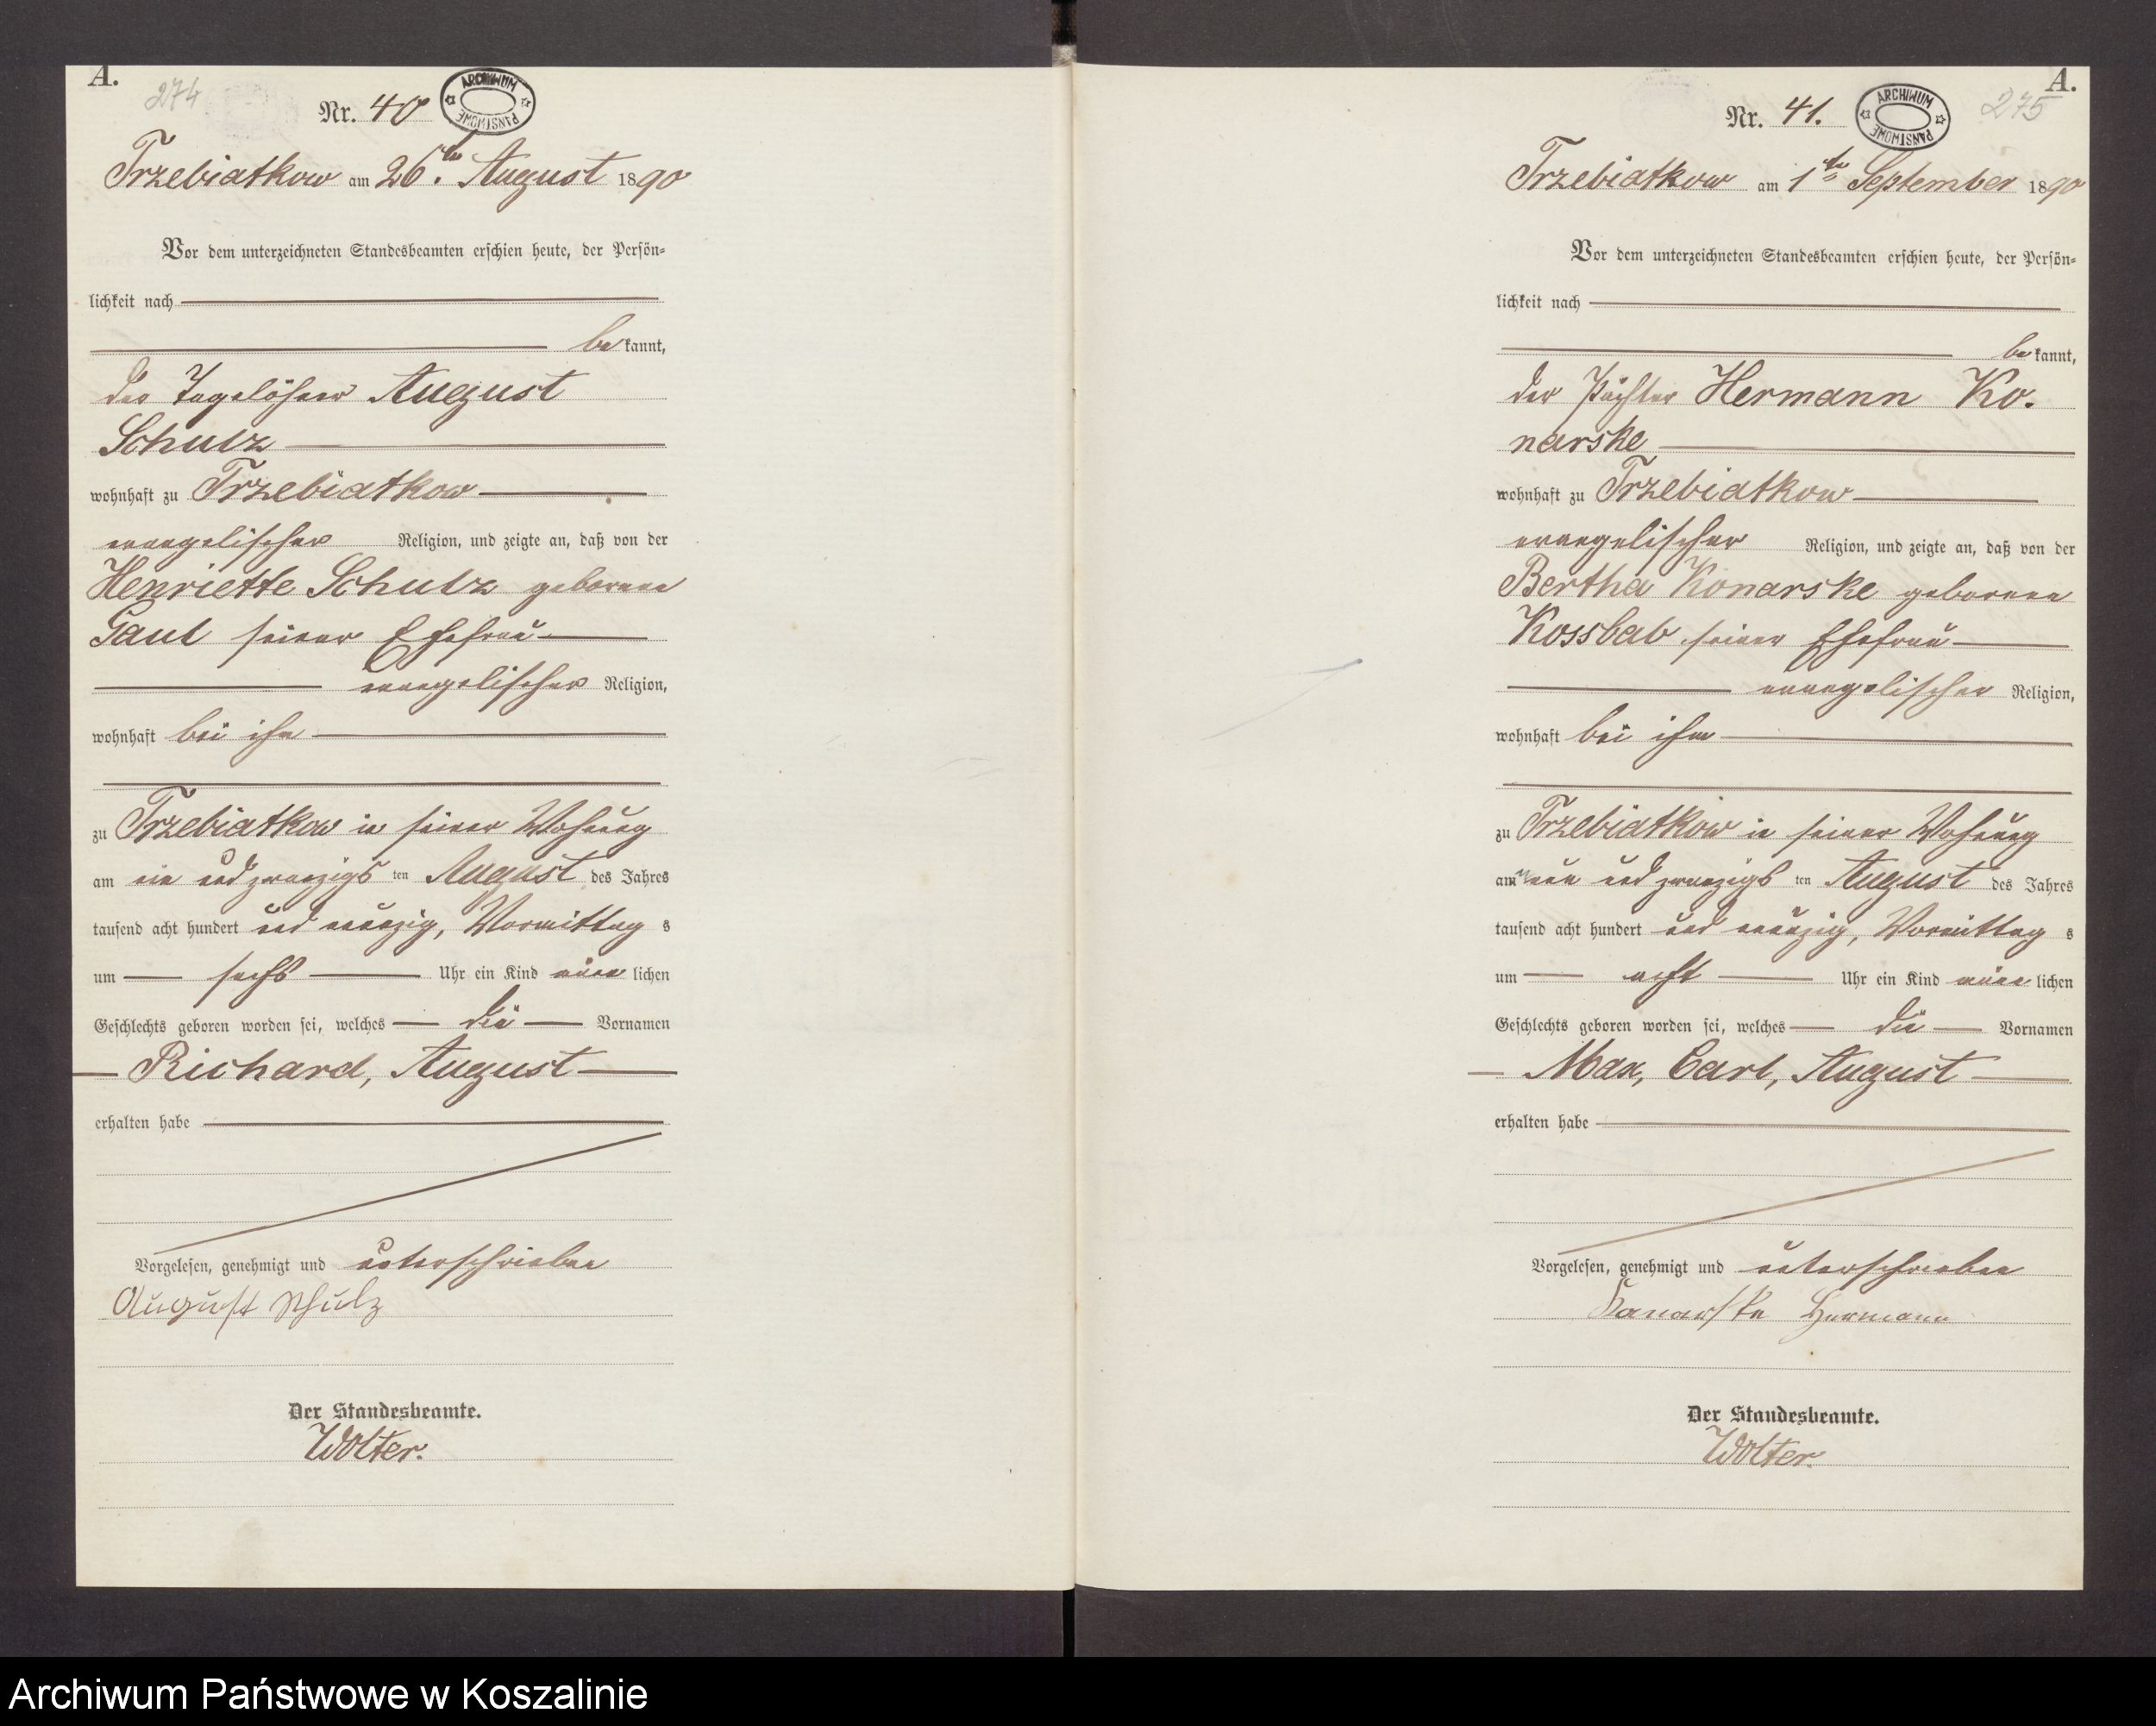 A.
274
Nr. 40
ARCHIWUM PAŃSTWOWE
Trzebiatkow am 26ten August 1890
Vor dem unterzeichneten Standesbeamten erschien heute, der Persön-
lichkeit nach
bekannt,
der Tagelöhner August
Schulz
wohnhaft zu Trzebiatkow
evangelischer Religion, und zeigte an, daß von der
Henriette Schulz geborene
Gaul seiner Ehefrau
evangelischer Religion,
wohnhaft bei ihm
zu Trzebiatkow in seiner Wohnung
am ein und zwanzigsten August des Jahres
tausend acht hundert und neunzig, Vormittags
um sechs Uhr ein Kind männlichen
Geschlechts geboren worden sei, welches die Vornamen
Richard, August
erhalten habe
Vorgelesen, genehmigt und unterschrieben
August Schulz
Der Standesbeamte.
Wolter.
A.
275
Nr. 41.
ARCHIWUM PAŃSTWOWE
Trzebiatkow am 1ten September 1890
Vor dem unterzeichneten Standesbeamten erschien heute, der Persön-
lichkeit nach
bekannt,
der Pächter Hermann Ko-
narske
wohnhaft zu Trzebiatkow
evangelischer Religion, und zeigte an, daß von der
Bertha Konarske geborene
Kossbab seiner Ehefrau
evangelischer Religion,
wohnhaft bei ihm
zu Trzebiatkow in seiner Wohnung
am neun und zwanzigsten August des Jahres
tausend acht hundert und neunzig, Vormittags
um acht Uhr ein Kind männlichen
Geschlechts geboren worden sei, welches die Vornamen
Max, Carl, August
erhalten habe
Vorgelesen, genehmigt und unterschrieben
Konarske Hermann
Der Standesbeamte.
Wolter.
Archiwum Państwowe w Koszalinie